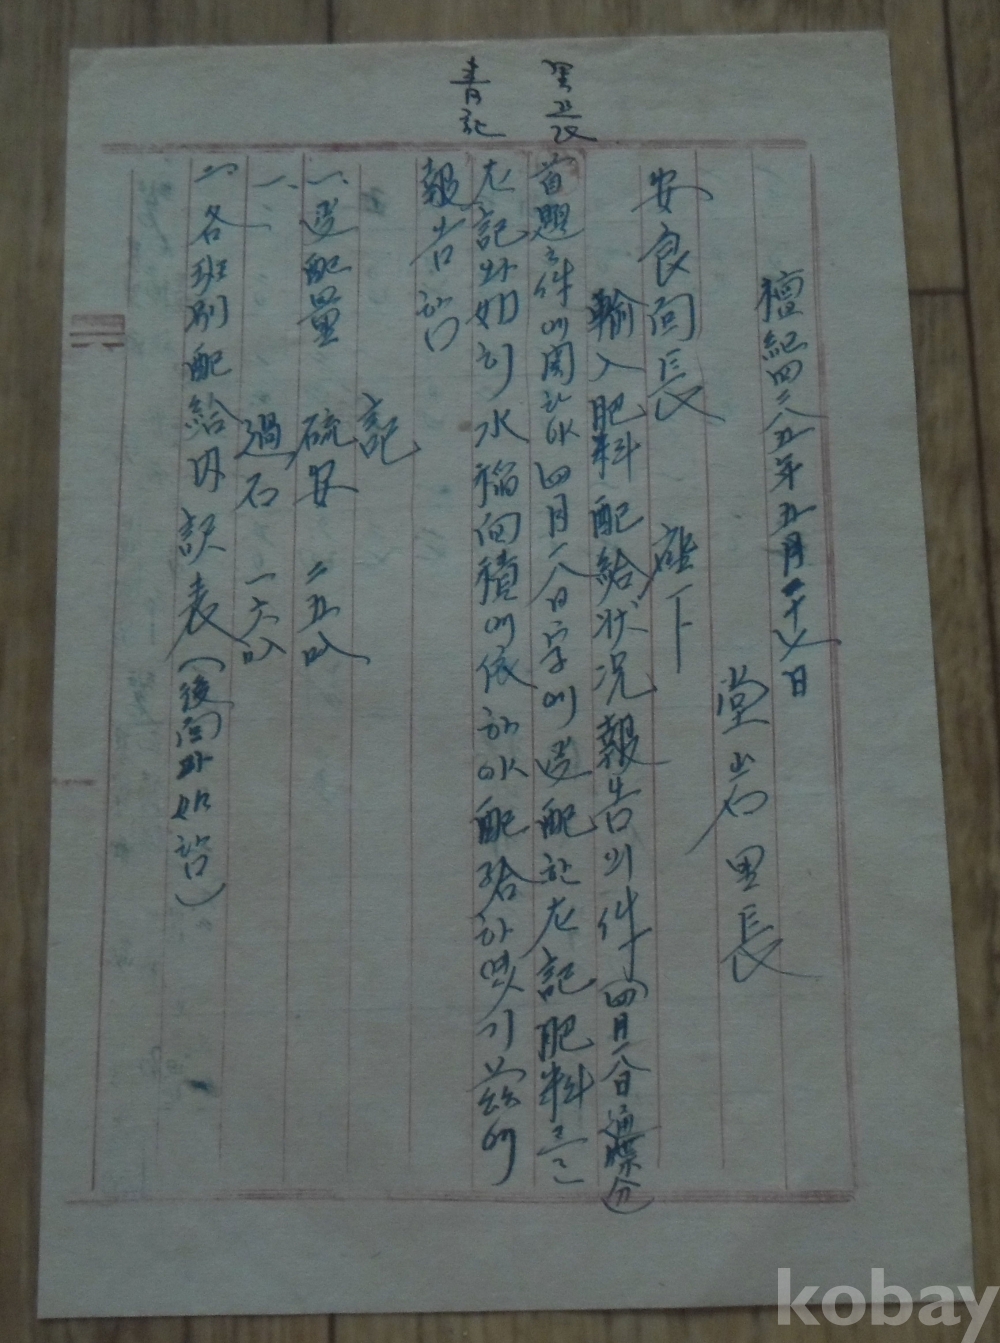 里長
書記
檀紀四二八五年五月二十七日
堂岩里長
安良面長 座下
輸入肥料配給狀況報告의件(四月二八日通牒分)
首題之件에関하야四月二八日字에選配한左記肥料를
左記와如히水稻面積에依하야配給하였기茲에
報告함
記
一、選配量 硫安 二五叺
一、 過石 一六叺
二、各班別配給内訳表(後面과如함)
kobay